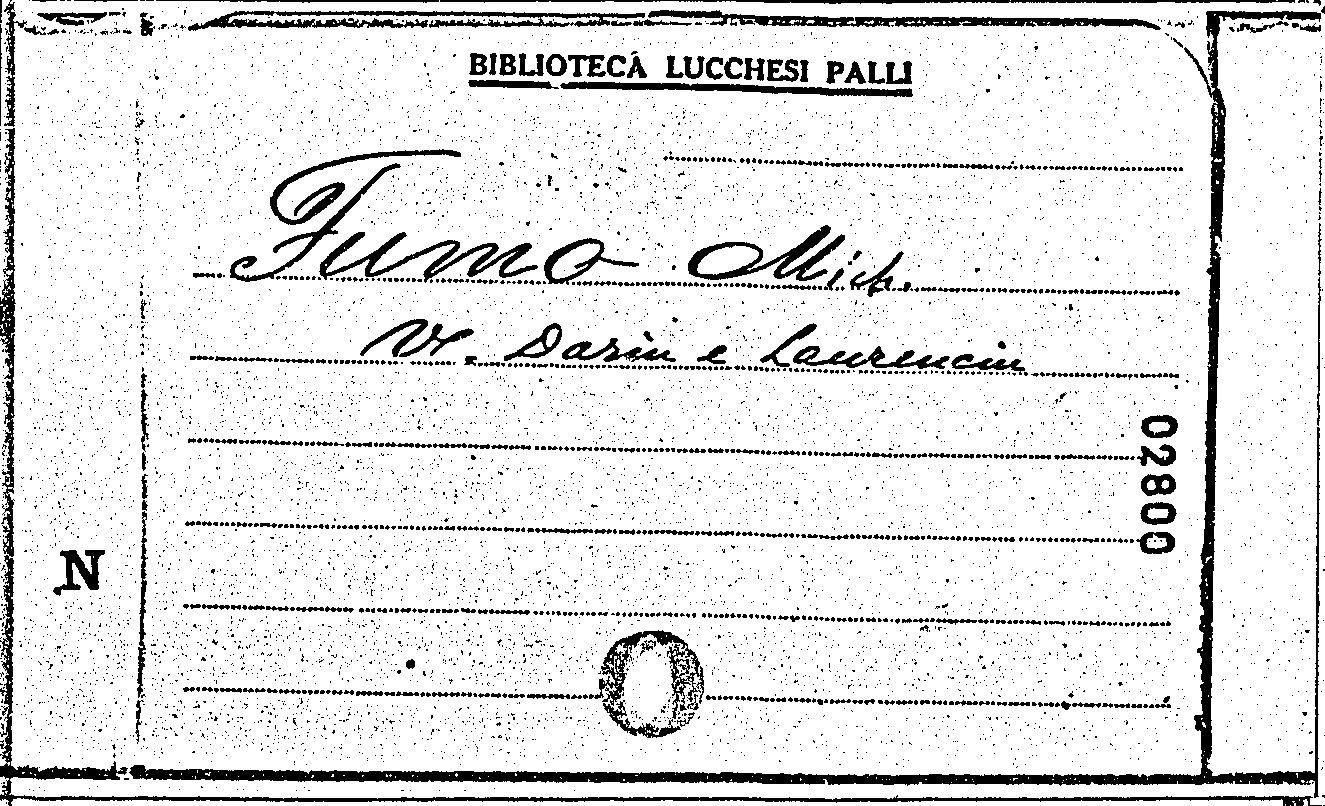 BIBLIOTECA LUCCHESI PALLI
Fumo Mich.
V. Darin e Laurencin
02800
N